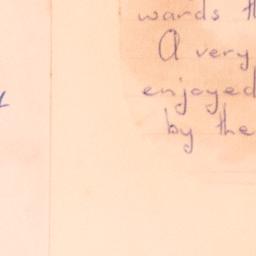 wards
A very
enjoyed
by the